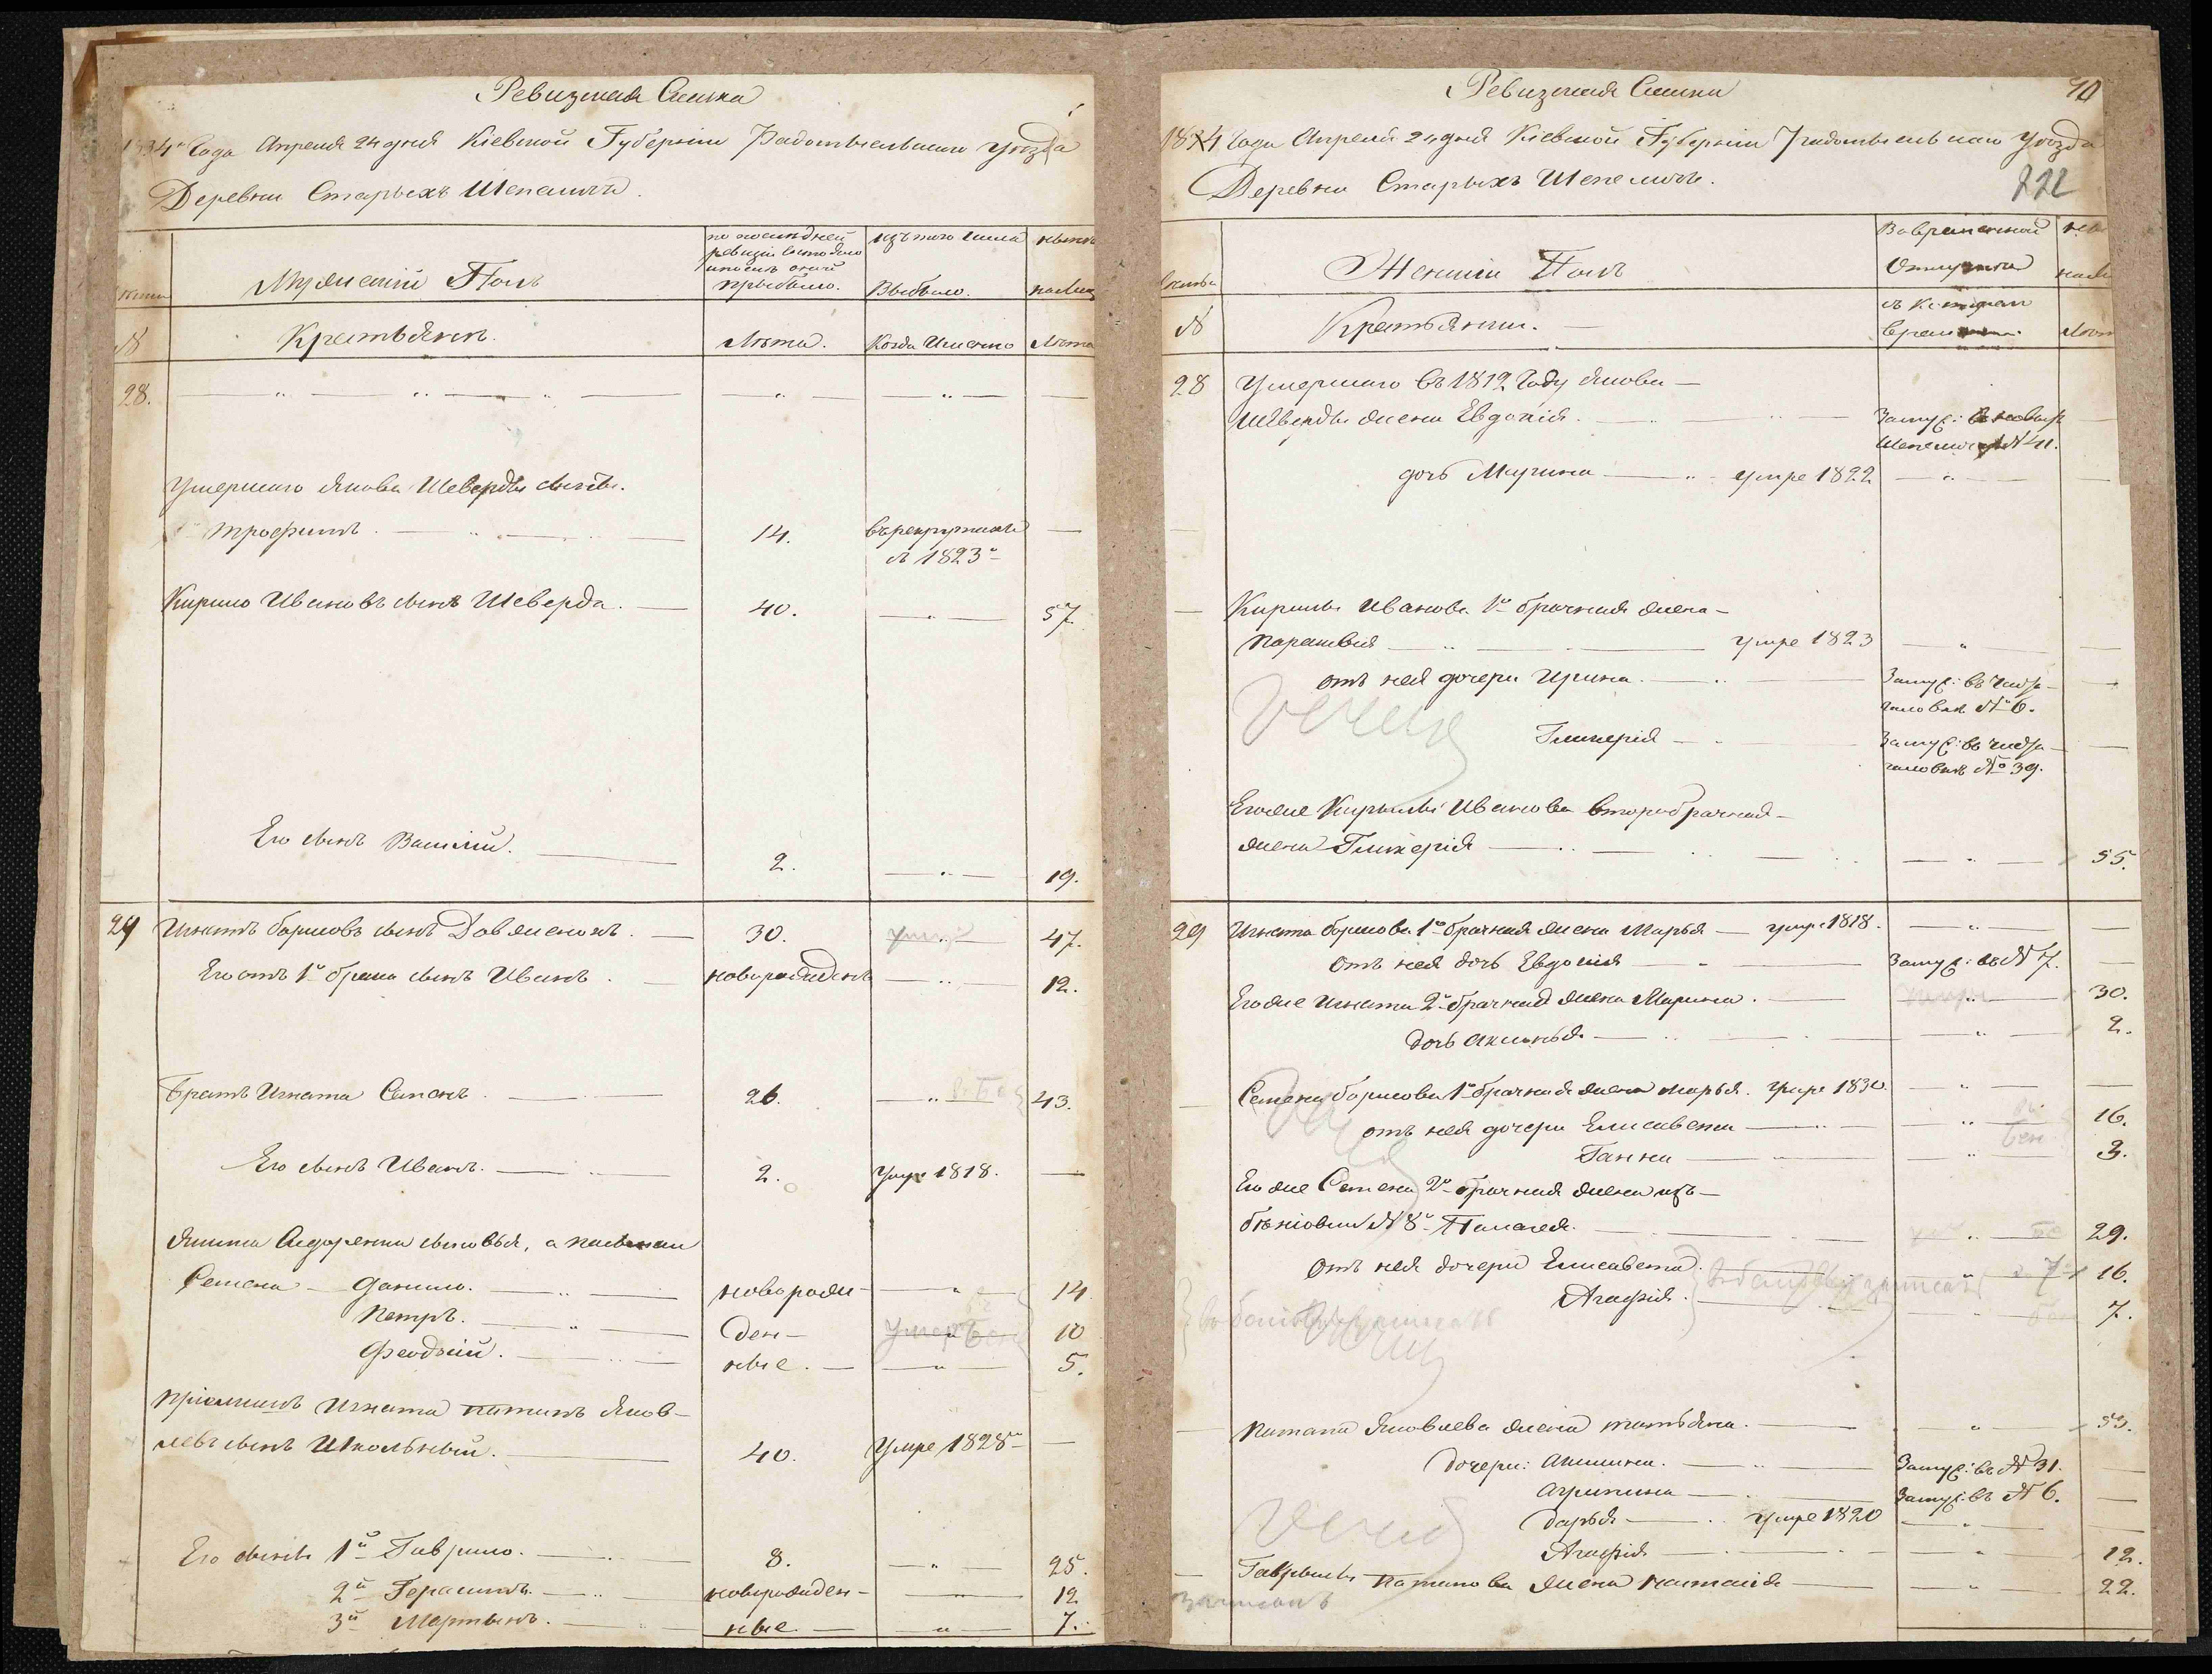 Ревизская Сказка
1834го Года Апреля 24 дня Кіевской Губерніи Радомысльскаго уѣзда
Деревни Старыхъ Шепеличъ.
по последней ревизіи состояло и после оной прибыло.
изъ того числа Выбыло.
нынѣ на лицо
Мужескій Полъ
№
Крестьянъ.
Лѣта.
Когда Именно
Лѣта
28.
Умершаго Якова Шеверды сынъ.
Трофимъ.
14.
въ рекрутахъ
съ 1823го
Кирило Ивановъ сынъ Шеверда.
40.
57.
Его сынъ Василій.
2.
19.
29 Игнатъ Борисовъ сынъ Довженокъ.
30.
47.
Его отъ 1го брака сынъ Иванъ.
новорожденъ
12.
Братъ Игната Семенъ.
26.
43.
Его сынъ Иванъ.
2.
Умре 1818.
Якима Сидоренка сыновья, а пасынки
Семена Данило.
новорож-
14
Петръ.
ден-
10
Феодосій.
ные.
5.
Пріймакъ Игната Потапъ Яков-
левъ сынъ Школьный.
40.
Умре 1828го
Его сыны 1й Гаврило.
8.
25.
2й Герасимъ.
новорожден-
12
3й Мартынъ.
ные.
7.
Ревизская Сказка
70
1834 Года Апреля 24 дня Кіевской Губерніи Радомысльскаго уѣзда
Деревни Старыхъ Шепеличъ.
222
Женскій Полъ
Во временной
Отлучке
съ котораго
времени.
№
Крестьянки.
28 Умершаго въ 1812 Году Якова
Шеверды жена Евдокія.
Замуж: въ новых
Шепеличах № 41.
дочь Марина
умре 1822
Кирилы Иванова 1о брачная жена
Параскевія
умре 1823
отъ нея дочери Ирина.
Замуж: въ чисто-
галовкѣ № 6.
Гликерія
Замуж: въ чисто-
галовкѣ № 39.
Его же Кирилы Иванова второбрачная
жена Гликерія
55.
29 Игната Борисова 1о брачная жена Марья умре 1818.
отъ нея дочь Евдокія
Замуж: въ № 7.
Его же Игната 2о брачная жена Марина.
30.
дочь Акилина
2.
Семена Борисова 1о брачная жена Марья. умре 1830.
отъ нея дочери Елисавета
16.
Ганна
3.
Его же Семена 2о брачная жена изъ
бѣніовки № 8о Палагея.
29.
отъ нея дочери Елисавета.
16.
Агафія.
7.
Потапа Яковлева жена Татьяна.
53.
дочери: Акилина.
Замуж: въ № 31.
Агрипина
Замуж: въ № 6.
Дарья
умре 1820
Агафія
12.
Гаврилы Потапова жена Наталія
22.